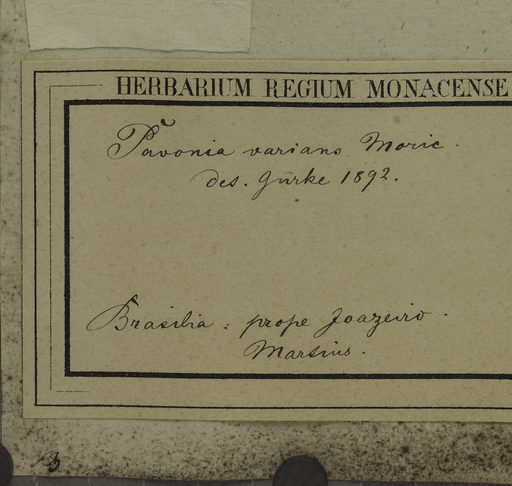 HERBARIUM REGIUM MONACENSE
Pavonia varians Moric.
des. Gürke 1892.
Brasilia: prope Joazeiro.
Martius.
b